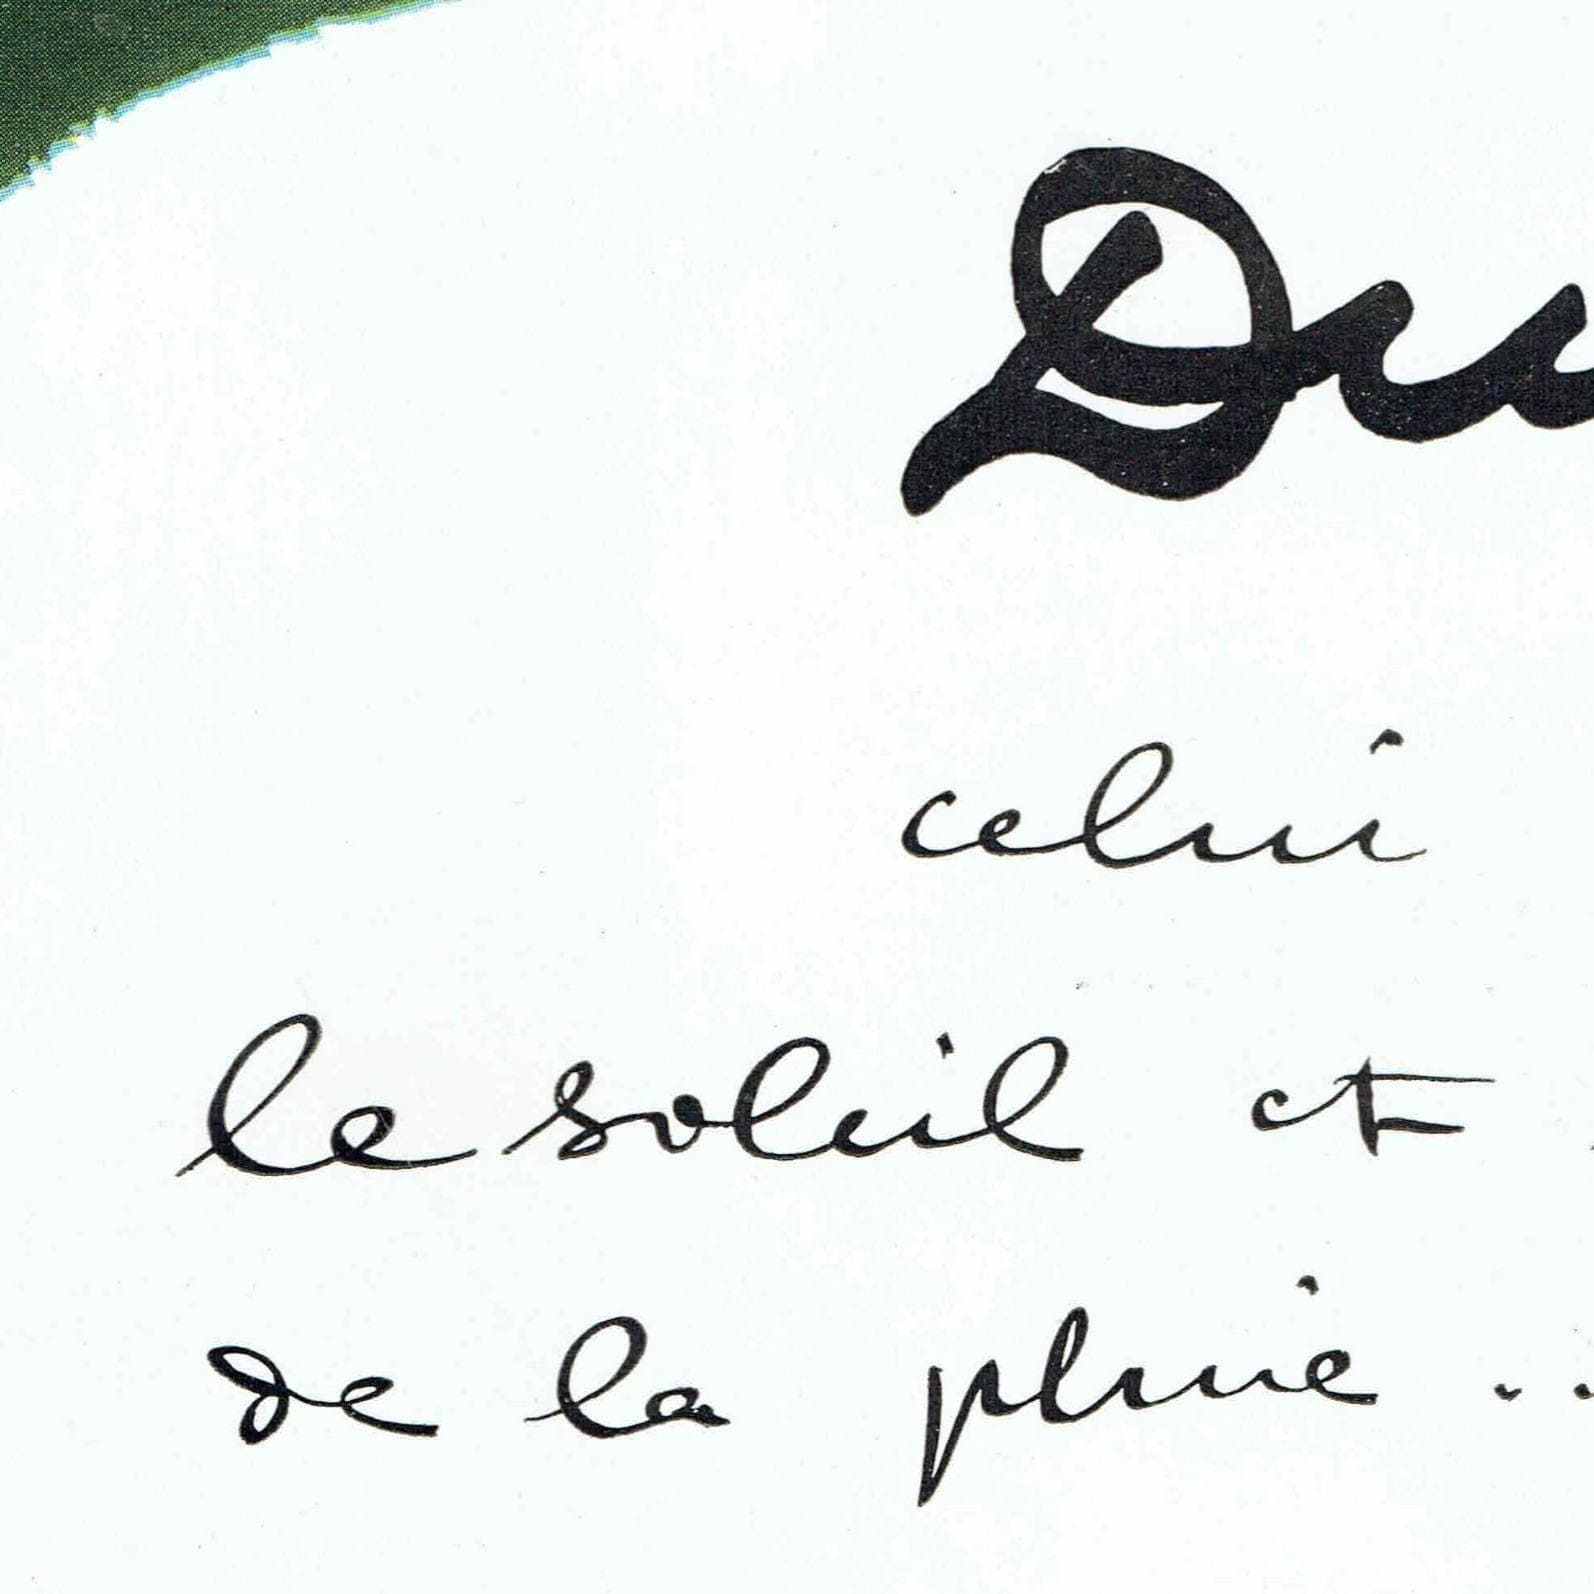 Du
celui
le soleil et
de la pluie ..